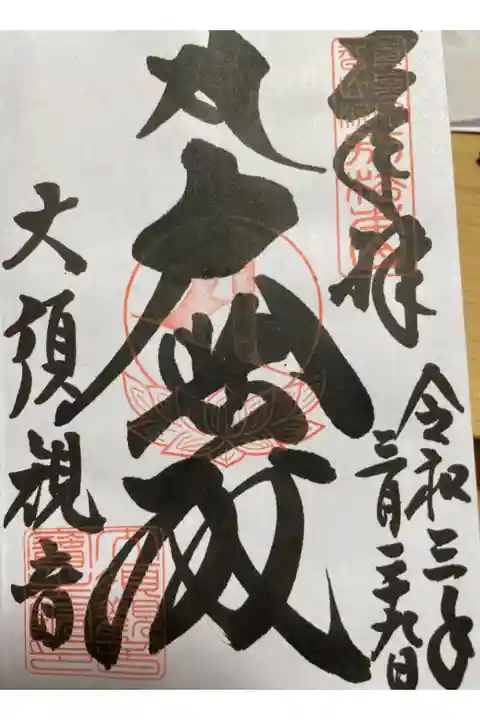 奉拝
令和三年
三月二十九日
大悲殿
大須観音